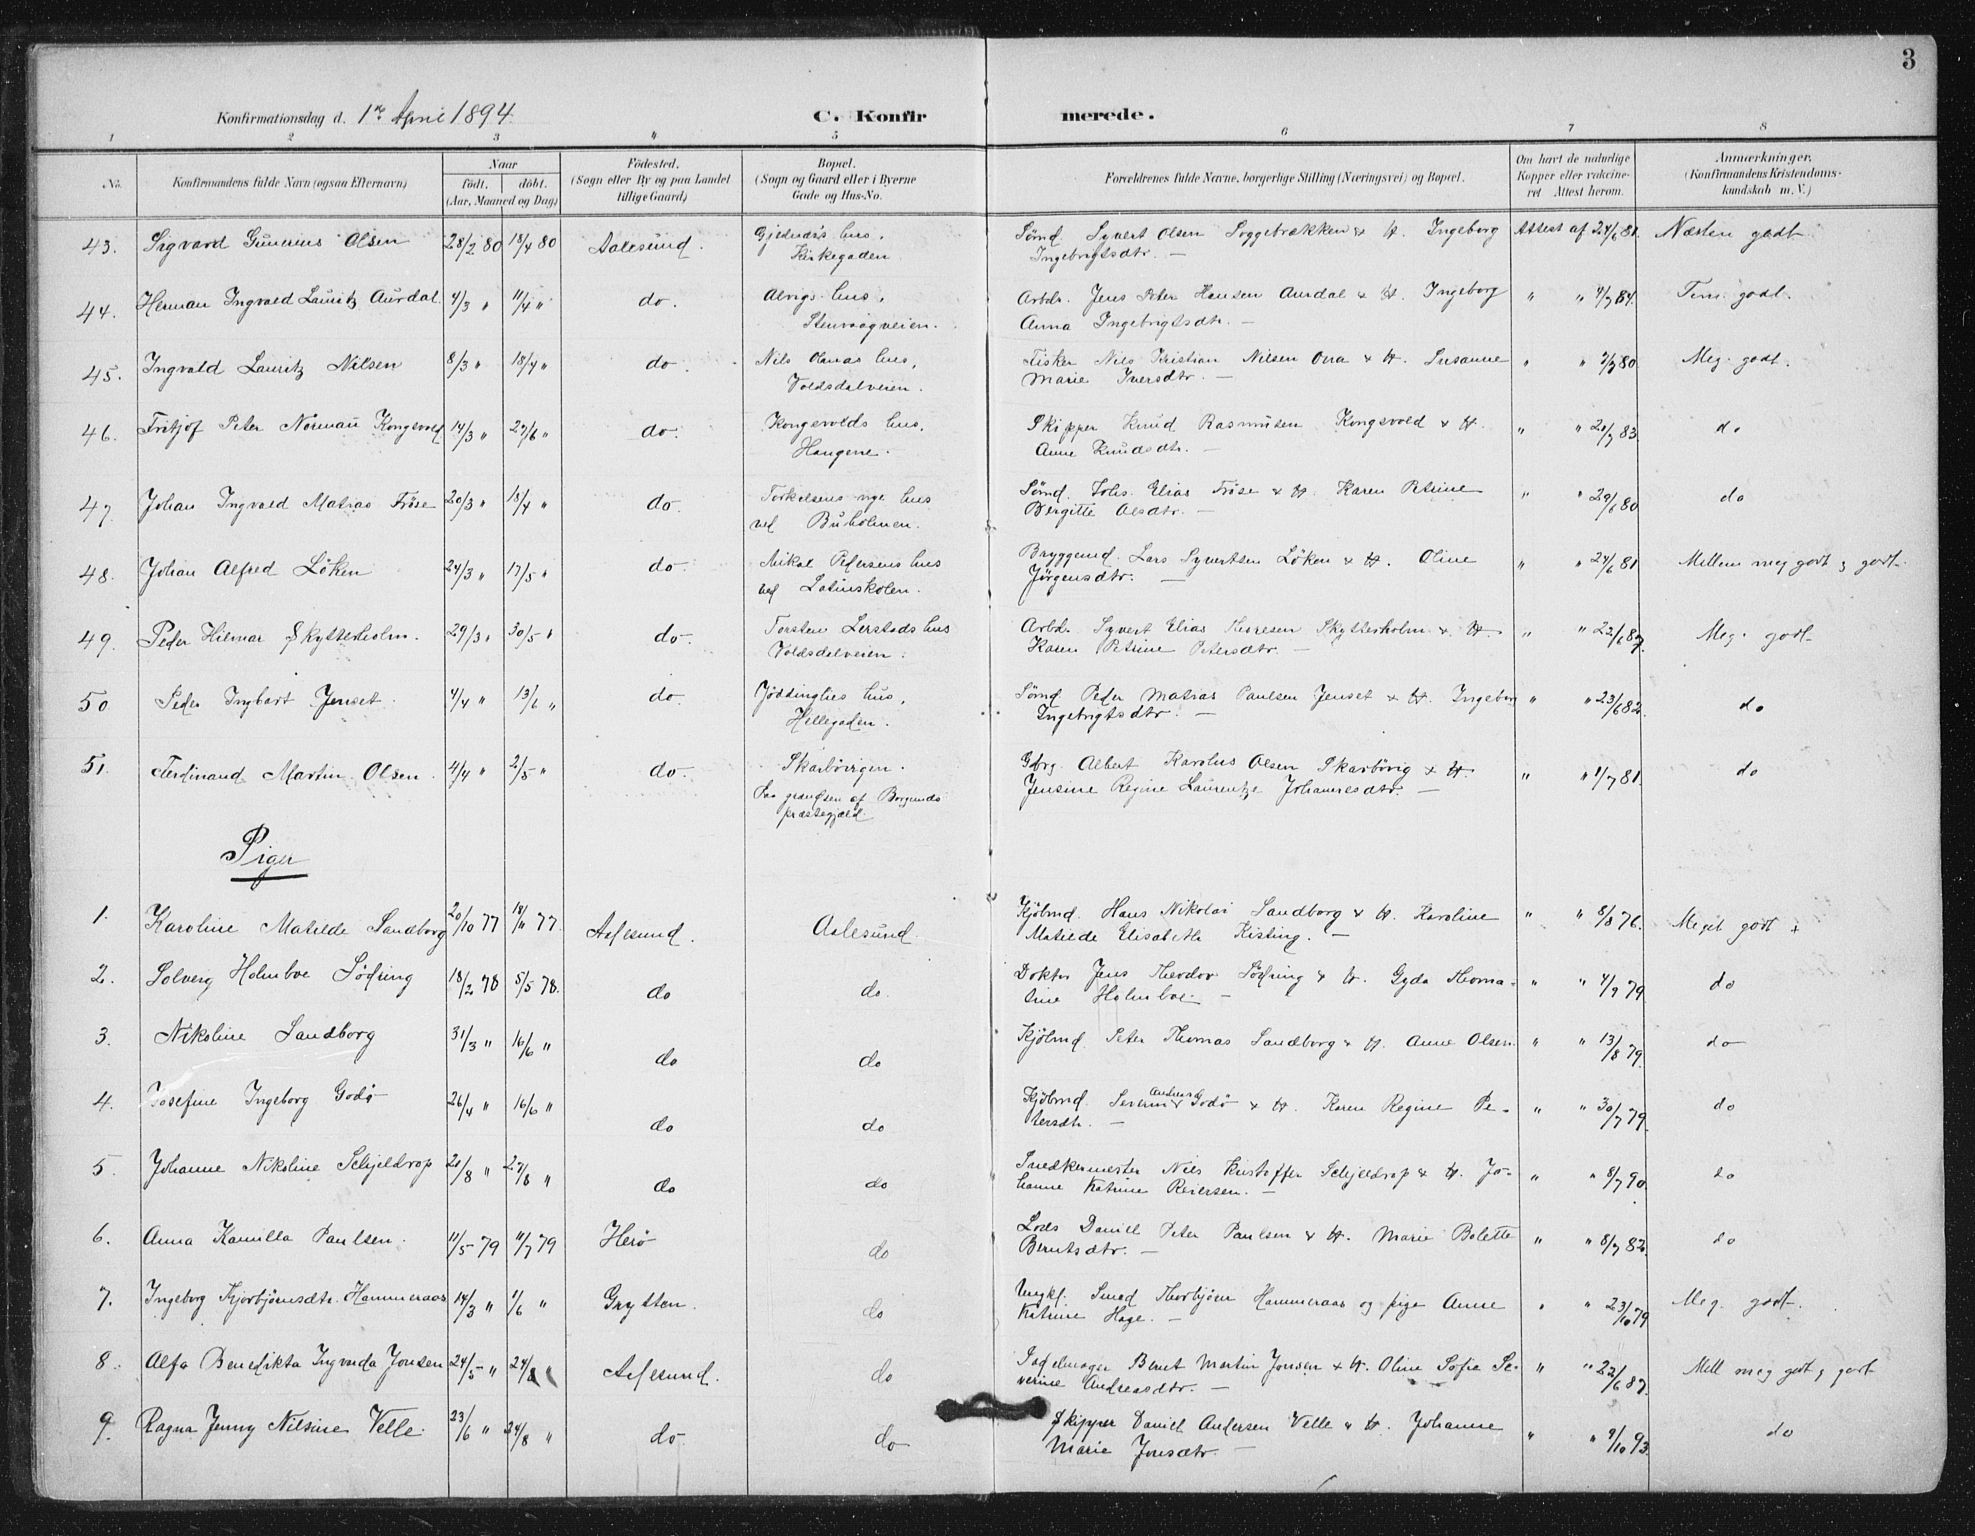 3
Konfirmationsdag d. 1ste April 1894. C. Konfirmerede.
1 2 3 " 5 6 7 8
No. Konfirmandens fulde Navn (ogsaa Efternavn) Naar födt. döbt. (Aar, Maaned og Dag) Födested. (Sogn eller By og paa Landet tillige Gaard) Bopæl. (Sogn og Gaard eller i Byerne Gade og Hus-No. Forældrenes fulde Navne, borgerlige Stilling (Næringsvei) og Bopæl. Om havt de naturlige Kopper eller vakcineret Attest herom. Anmærkninger. (Konfirmandens Kristendomskundskab m. V.)
43. Sigvard Gunerius Olsen 28/2 80 18/4 80 Aalesund. Gjednæs's hus, Sömd. Syvert Olsen Soggebrækken & H. Ingeborg Attest af 24/6 81. Næsten godt
Kirkegaden. Ingebrigtsdtr. —
44. Herman Ingvald Lauritz Aurdal 4/3 " 11/4 " do. Alvigs hus, Arbdr. Jens Peter Hansen Aurdal & H. Ingeborg " " 4/7 84. Tem. godt.
Stenvaagveien. Anna Ingebrigtsdtr. —
45. Ingvald Lauritz Nilsen 8/3 " 18/4 " do. Nils Onas hus, Fisker Nils Kristian Nilsen Ona & H. Susanne " " 2/7 80. Meg. godt.
Voldsdalveien. Marie Iversdtr. —
46. Fritjof Peter Norman Kongsvold 14/3 " 27/6 " do. Kongsvolds hus, Skipper Knud Rasmusen Kongsvold & H. " " 20/7 83. do
Haugene. Anne Knudsdtr. —
47. Johan Ingvald Matias Fröse 20/3 " 18/4 " do. Torkelsens nye hus Sömd. Johs. Elias Fröse & H. Karen Petrine " " 29/6 80. do
ved Buholmen. Bergitte Olsdtr. —
48. Johan Alfred Löken 24/3 " 17/5 " do. Mikal Pedersens hus Bryggemd. Lars Syvertsen Löken & H. Oline " " 24/6 81 Mellem meg godt & godt.
ved Latinskolen. Jörgensdtr. —
49. Peder Hilmar Skytterholm. 29/3 " 30/5 " do. Torsten Lerstads hus Arbdr. Syvert Elias Thoresen Skytterholm & H. " " 22/6 87. Meg. godt
Voldsdalveien. Karen Petrine Petersdtr. —
50 Peder Ingbart Jenset. 4/4 " 13/6 " do. Jöddinglies hus, Sömd. Peder Matias Paulsen Jenset & H. Ingeborg " " 23/6 82. do
Hellegaden. Ingebrigtsdtr. —
51. Ferdinand Martin Olsen. 4/4 " 2/5 " do. Skarbövigen. Gbrg. Albert Karolus Olsen Skarbövig & H. " " 1/7 81. do
Paa grændsen af Borgunds Jensine Regine Laurentze Johannesdtr. —
præstegjæld.
Piger
1. Karoline Matilde Sandborg 20/10 77 18/11 77. Aalesund. Aalesund. Kjöbmd. Hans Nikolai Sandborg & H. Karoline " " 8/8 76. Meget godt +
Matilde Elisabeth Kisting. —
2. Solveig Holmboe Södring 18/2 78 5/5 78. do do. Doktor Jens Theodor Södring & H. Gyda Thoma- " " 4/9 79. do
sine Holmboe. —
3. Nikoline Sandborg 31/3 " 16/6 " do do Kjöbmd. Peter Thomas Sandborg & H. Anne Olsen. " " 13/8 79. do
4. Josefine Ingeborg Godö 26/4 " 16/6 " do do Kjöbmd. Severin Andreas Godö & H. Karen Regine Pe- " " 30/7 79. do
tersdtr. —
5. Johanne Nikoline Schjeldrop 20/8 " 27/8 " do do Snedkermester Nils Kristoffer Schjeldrop & H. Jo- " " 8/7 90. do
hanne Katrine Reiersen. —
6. Anna Kamilla Paulsen. 11/5 79 11/7 79 Herö do Lods Daniel Peter Paulsen & H. Marie Bolette " " 8/7 82. do
Berntsdtr. —
7. Ingeborg Thorbjörnsdtr. Hammeraas 14/3 " 1/6 " Grytten. do Ungkl. Smed Thorbjörn Hammeraas og pige Anne " " 23/10 79 Meg. godt.
Katrine Hage. —
8. Alfa Benedikta Ingvarda Jonsen 24/5 " 24/8 " Aalesund. do Sadelmager Bernt Martin Jonsen & H. Oline Sofia Se- " " 22/6 87. Mell meg godt & godt
verine Andreasdtr. —
9. Ragna Jenny Nilsine Velle. 23/6 " 24/8 " do. do Skipper Daniel Andersen Velle & H. Johanne " " 9/10 93. do
Marie Jonsdtr. —